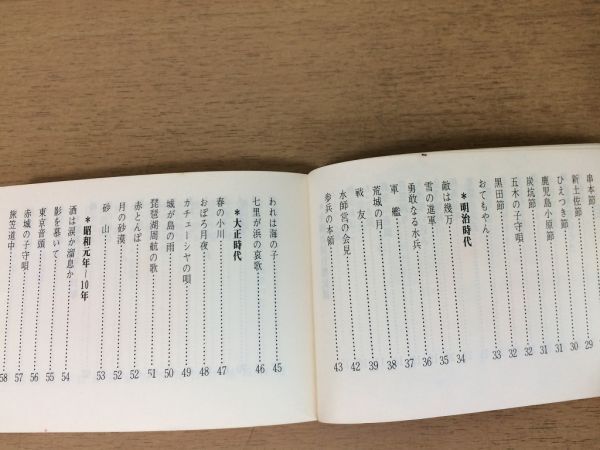 串本節 29
新土佐節 30
ひえつき節 31
鹿児島小原節 31
炭坑節 32
五木の子守唄 32
黒田節 33
おてもやん
＊明治時代
敵は幾万 34
雪の進軍 35
勇敢なる水兵 36
軍艦 37
荒城の月 38
戦友 39
水師営の会見 42
歩兵の本領 43
われは海の子 45
七里が浜の哀歌 46
＊大正時代
春の小川 47
おぼろ月夜 48
カチューシャの唄 49
城が島の雨 50
琵琶湖周航の歌 51
赤とんぼ 52
月の砂漠 52
砂山 53
＊昭和元年―10年
酒は涙か溜息か 54
影を慕いて 55
東京音頭 56
赤城の子守唄 57
旅笠道中 58